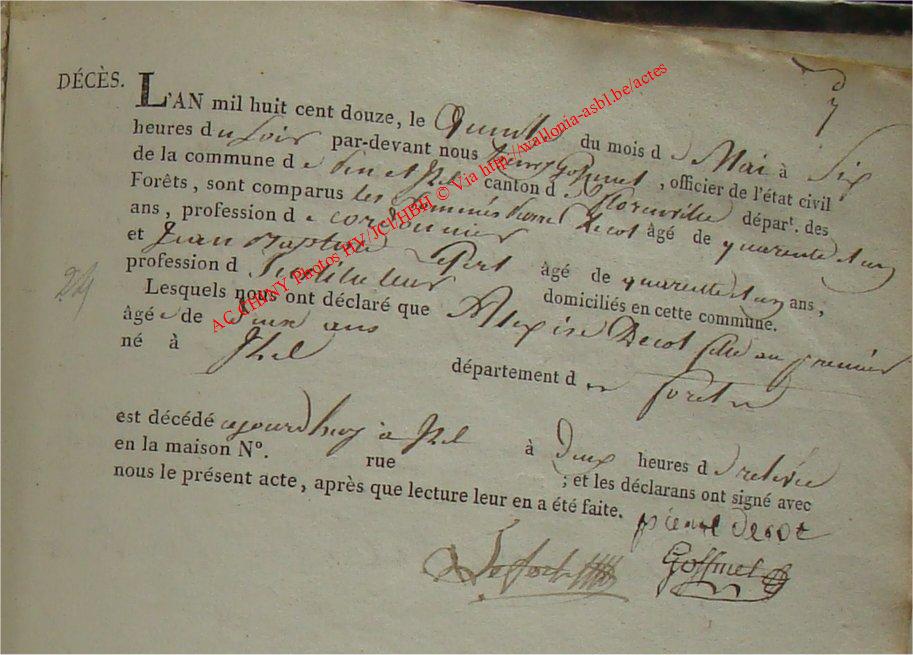 DÉCÈS.
L'AN mil huit cent douze, le Quinze du mois de Mai à Six
heures du Soir par-devant nous Goffinet, officier de l'état civil
de la commune de pin et Izel canton de florenville départ. des
Forêts, sont comparus les nommés pierre Decot âgé de quarente et un
ans, profession de cordonnier
et Jean Baptiste âgé de quarente et un ans,
profession d Instituteur domiciliés en cette commune.
Lesquels nous ont déclaré que Decot fille au premier
âgée de ans
né à Izel département des foret
est décédé aujourd'huy à Izel à Deux heures de relevée
en la maison N°. rue ; et les déclarans ont signé avec
nous le présent acte, après que lecture leur en a été faite. pierre decot
Goffinet
AC CHINY Photos HV/JCL/HBH © Via http://wallonia-asbl.be/actes